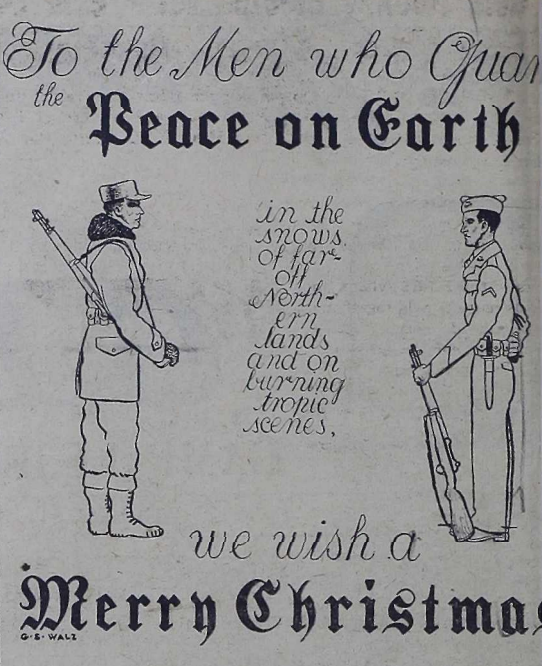 To the Men who Guar
the
Peace on Earth
in the
snows
of far-
off
North-
ern
lands
and on
burning
tropic
scenes,
we wish a
Merry Christmas
G·S·WALZ